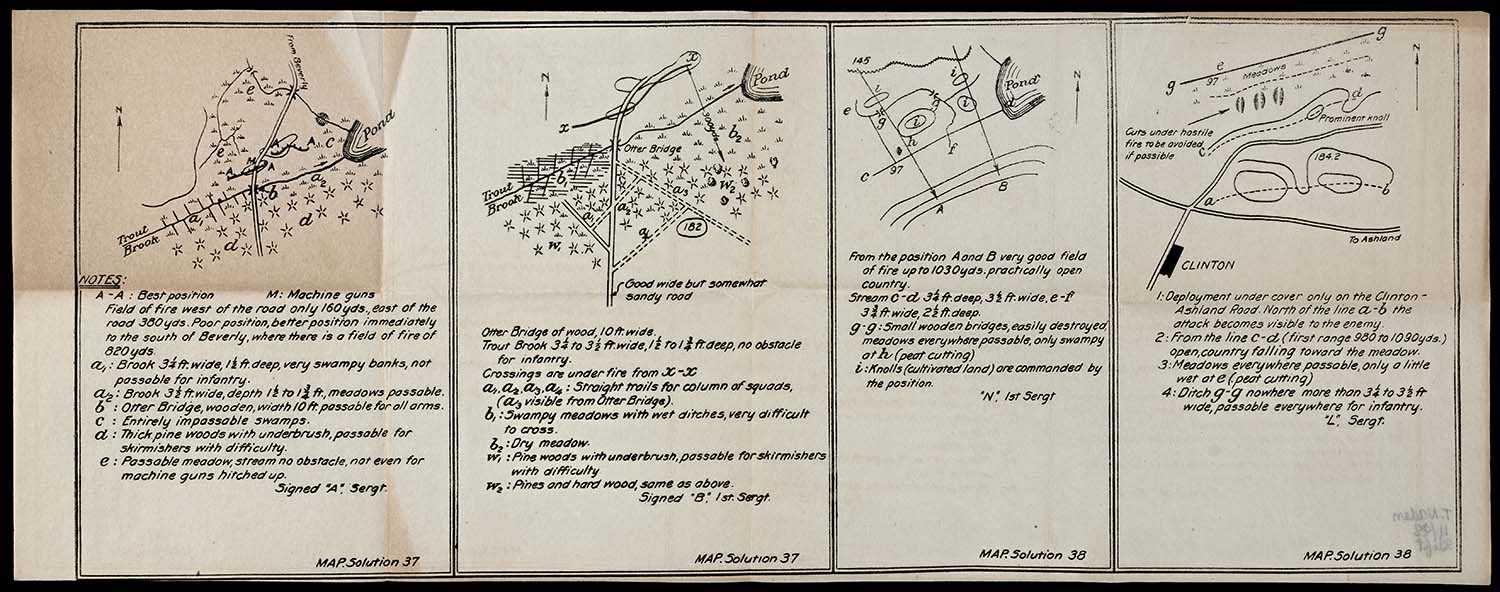 From Beverly
N
e
Pond
A
A
c
e
M
A
A
a2
b
a1
Trout
Brook
d
d
NOTES:
A-A : Best position M: Machine guns
Field of fire west of the road only 160 yds., east of the
road 380 yds. Poor position, better position immediately
to the south of Beverly, where there is a field of fire of
820 yds.
a1 : Brook 3¼ ft. wide, 1½ ft. deep, very swampy banks, not
passable for infantry.
a2 : Brook 3½ ft. wide, depth 1½ to 1¾ ft., meadows passable.
b : Otter Bridge, wooden, width 10 ft. passable for all arms.
c : Entirely impassable swamps.
d : Thick pine woods with underbrush, passable for
skirmishers with difficulty.
e : Passable meadow, stream no obstacle, not even for
machine guns hitched up.
Signed "A", Sergt.
MAP. Solution 37
N
x
Pond
x
300 yds.
b2
Otter Bridge
Trout
Brook
b1
a3
w2
a1
a2
a4
182
w1
Good wide but somewhat
sandy road
Otter Bridge of wood, 10 ft. wide.
Trout Brook 3¼ to 3½ ft. wide, 1½ to 1¾ ft. deep, no obstacle
for infantry.
Crossings are under fire from x-x
a1, a2, a3, a4 : Straight trails for column of squads,
(a3 visible from Otter Bridge).
b1 : Swampy meadows with wet ditches, very difficult
to cross.
b2 : Dry meadow.
w1 : Pine woods with underbrush, passable for skirmishers
with difficulty
w2 : Pines and hard wood, same as above.
Signed "B", 1st. Sergt.
MAP. Solution 37
145
N
i
Pond
i
e
g
g
i
d
i
h
f
c
97
B
A
From the position A and B very good field
of fire up to 1030 yds. practically open
country.
Stream c-d 3¼ ft. deep, 3½ ft. wide, e-f
3¾ ft. wide, 2½ ft. deep.
g-g : Small wooden bridges, easily destroyed,
meadows everywhere passable, only swampy
at h (peat cutting)
i : Knolls (cultivated land) are commanded by
the position.
"N", 1st Sergt
MAP. Solution 38
g
N
e
97
Meadows
g
d
Prominent knoll
Cuts under hostile
fire to be avoided
if possible
c
184.2
a
b
To Ashland
CLINTON
1: Deployment under cover only on the Clinton-
Ashland Road. North of the line a-b the
attack becomes visible to the enemy.
2: From the line c-d (first range 980 to 1090 yds.)
open, country falling toward the meadow.
3: Meadows everywhere passable, only a little
wet at e (peat cutting)
4: Ditch g-g nowhere more than 3¼ to 3½ ft
wide, passable everywhere for infantry.
"L", Sergt.
MAP. Solution 38